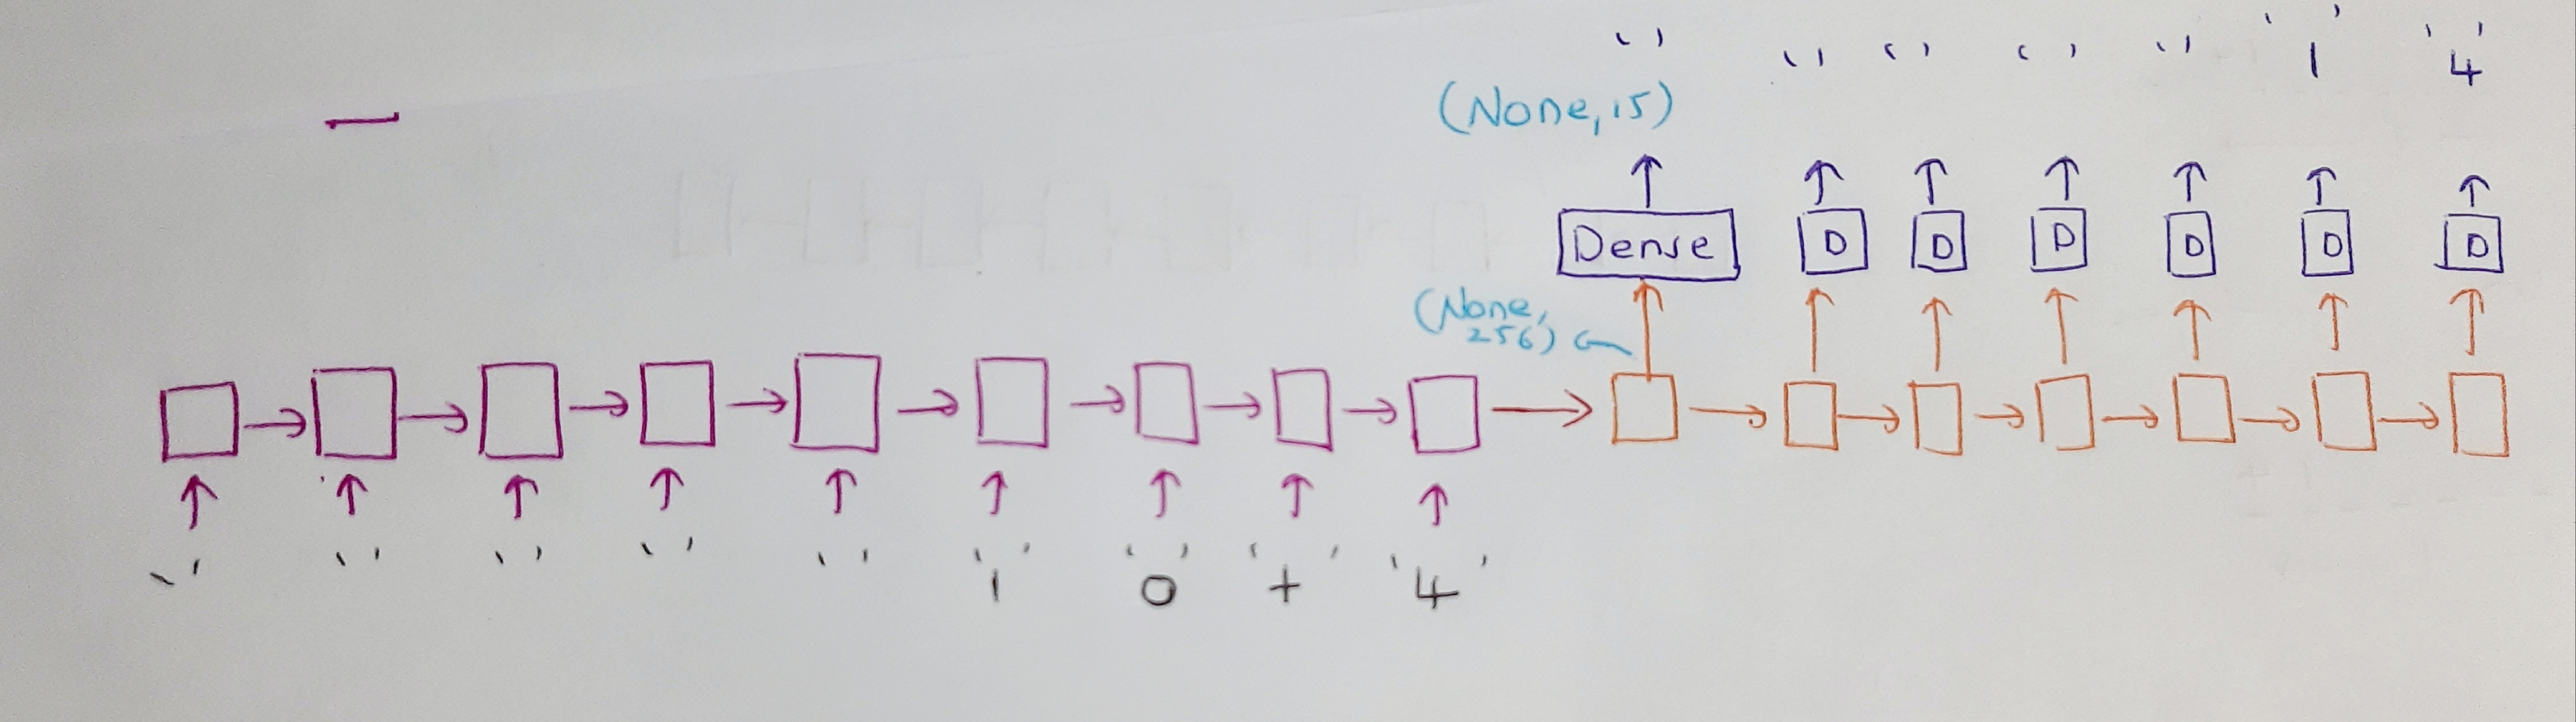 ' ' ' ' ' ' ' ' ' ' '1' '4'
(None, 15)
Dense D D D D D D
(None,
256)
' ' ' ' ' ' ' ' ' ' '1' '0' '+' '4'